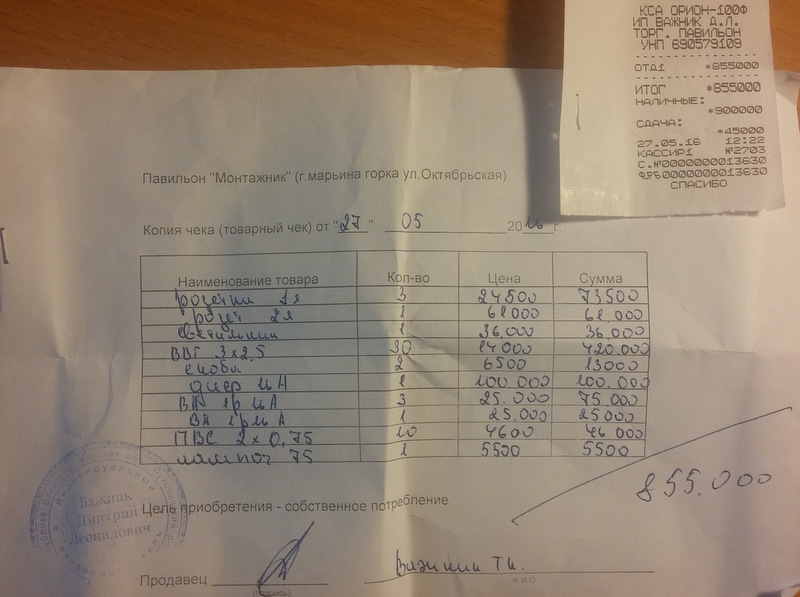 КСА ОРИОН-100Ф
ИП ВАЖНИК Д.Л.
ТОРГ. ПАВИЛЬОН
УНП 690579109
ОТД1 *855000
ИТОГ *855000
НАЛИЧНЫЕ:
*900000
СДАЧА:
*45000
27.05.16 12:22
КАССИР1 №2703
С.№0000000013630
0000000013630
СПАСИБО
Павильон "Монтажник" (г.марьина горка ул.Октябрьская)
Копия чека (товарный чек) от "27" 05 2016 г.
Наименование товара Кол-во Цена Сумма
розетки 1я 3 24500 73500
розет 2я 1 61000 61.000
светильник 1 36.000 36.000
ВВГ 3x2,5 30 14000 420.000
скобы 2 6500 13000
1 100.000 100.000
ВА 3 25.000 75.000
ВА 1 25.000 25000
ПВС 2x0,75 10 4600 46 000
75 1 5500 5500
855.000
Цель приобретения - собственное потребление.
Важник
Дмитрий
Леонидович
Продавец
(подпись)
ФИО